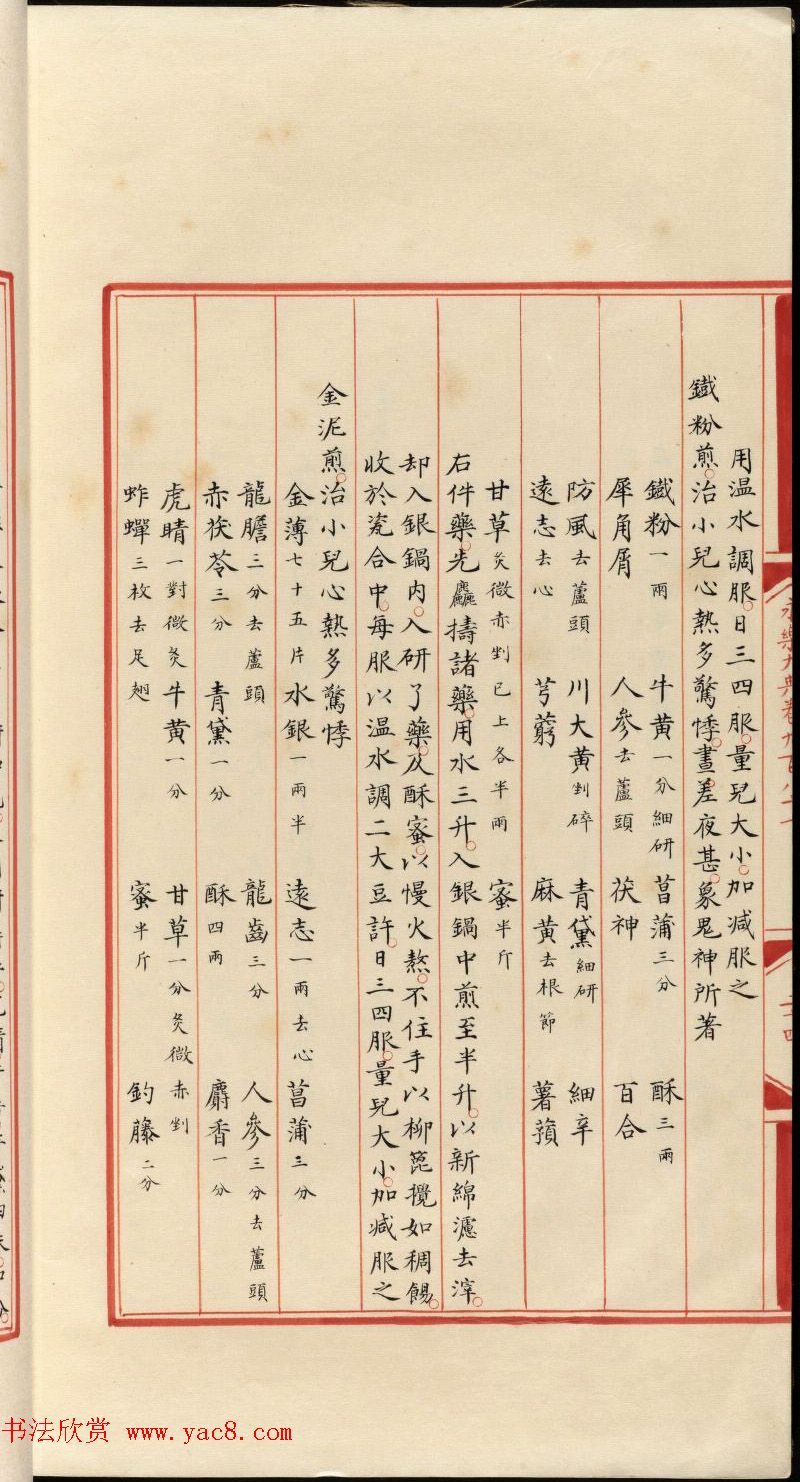 永樂大典卷九百八十一
二十四
用温水調服。日三四服。量兒大小。加减服之
鐵粉煎。治小兒心熱多驚悸。晝差夜甚。象鬼神所著
鐵粉一兩 牛黄一分細研 菖蒲三分 酥三兩
犀角屑 人參去蘆頭 茯神 百合
防風去蘆頭 川大黄剉碎 青黛細研 細辛
遠志去心 芎藭 麻黄去根節 薯蕷
甘草炙微赤剉已上各半兩 蜜半斤
右件藥。先麤擣諸藥。用水三升。入銀鍋中煎至半升。以新綿濾去滓。
却入銀鍋内。入研了藥。及酥蜜。以慢火熬。不住手以柳篦攪如稠餳。
收於瓷合中。每服以温水調二大豆許。日三四服。量兒大小。加减服之
金泥煎。治小兒心熱多驚悸
金薄七十五片 水銀一兩半 遠志一兩去心 菖蒲三分
龍膽三分去蘆頭 龍齒三分 人參三分去蘆頭
赤茯苓三分 青黛一分 酥四兩 麝香一分
虎睛一對微炙 牛黄一分 甘草一分炙微赤剉
蚱蟬三枚去足翅 蜜半斤 釣藤二分
书法欣赏 www.yac8.com